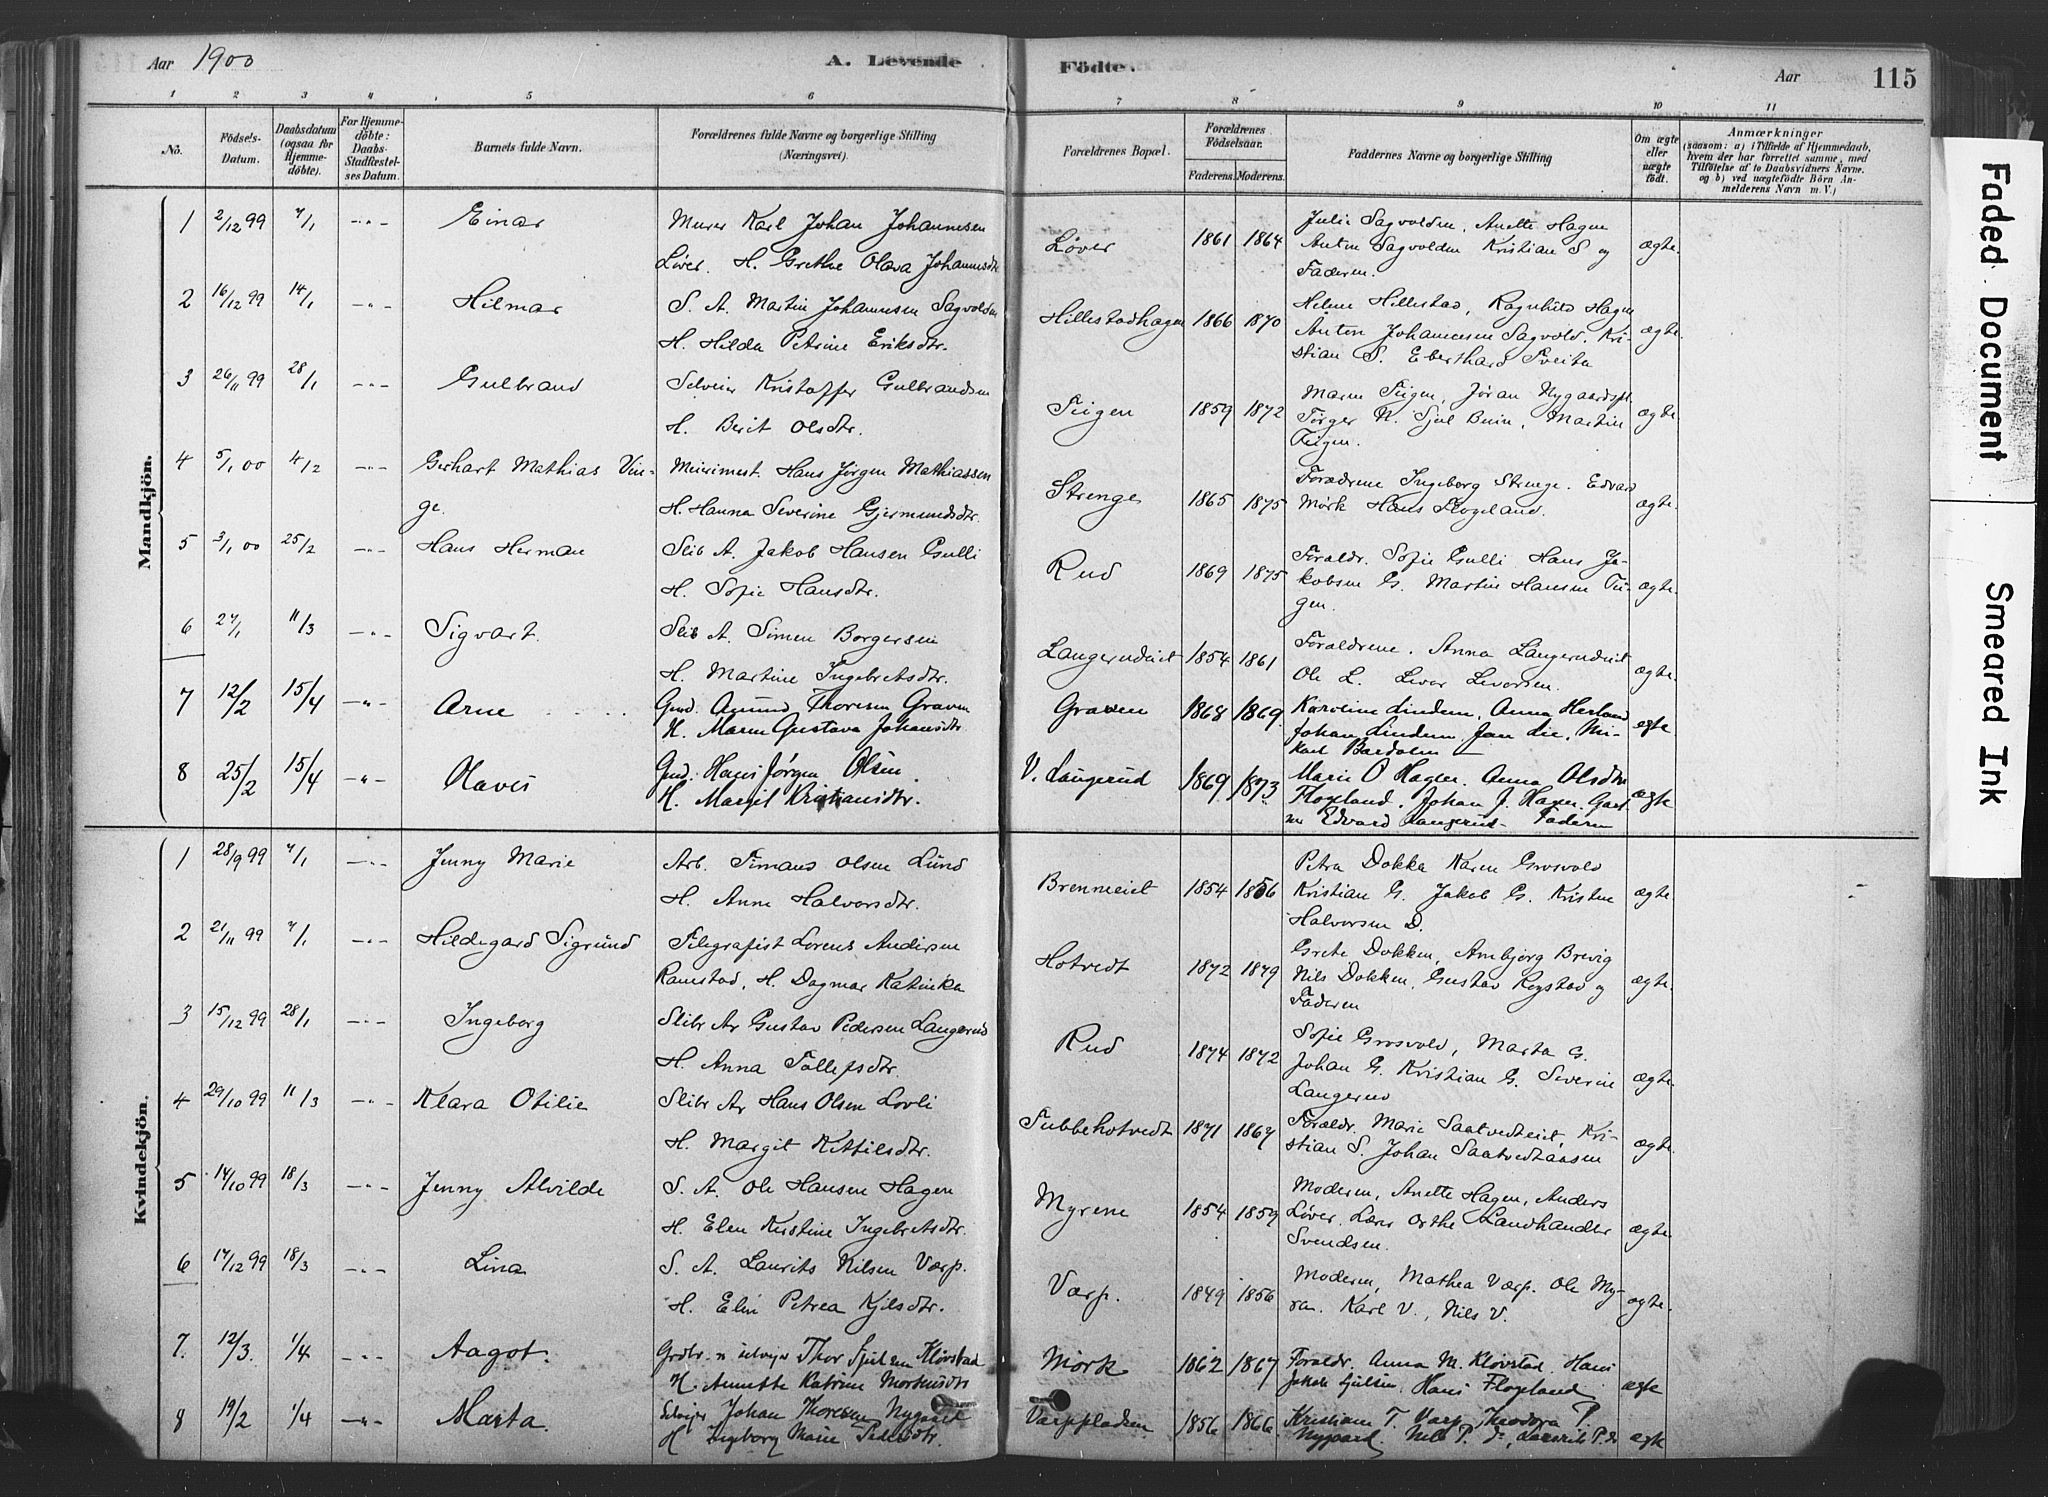 Aar 1900
A. Levende
Födte.
Aar
115
1 2 3 4 5 6 7 8 9 10 11
No.
Födsels-Datum.
Daabsdatum (ogsaa for Hjemmedöbte).
For Hjemmedöbte: Daabs-Stadfæstelses Datum.
Barnets fulde Navn.
Forældrenes fulde Navne og borgerlige Stilling
(Næringsvei).
Forældrenes Bopæl.
Forældrenes Födselsaar.
Faderens. Moderens.
Faddernes Navne og borgerlige Stilling
Om ægte eller uægte födt.
Anmærkninger
(saasom: a) i Tilfælde af Hjemmedaab, hvem der har forrettet samme, med Tilföielse af to Daabsvidners Navne, og b) ved uægtefödte Börn Anmelderens Navn m. V.)
Mandkjön.
1 2/12 99 7/1 -"- Einar
Murer Karl Johan Johannesen
Löver. H. Grethe Olava Johannsdtr
Löver 1861 1864
Julie Sagvolden, Anette Hagen
Anton Sagvolden Kristian S og
Faderen.
ægte.
2 16/12 99 14/1 -"- Hilmar
S. A. Martin Johannesen Sagvolden
H. Hilda Petrine Eriksdtr.
Hillestadhagen 1866 1870
Helene Hillestad, Ragnhild Hagen
Anton Johannesen Sagvold, Kri-
stian S. Eberthard Tveita
ægte.
3 26/11 99 28/1 -"- Gulbrand
Selveier Kristoffer Gulbrandsen
H. Berit Olsdtr.
Teigen 1859 1872
Maren Teigen, Jöran Nygaardspl.
Törger N. Martin
Teigen.
ægte.
4 5/1 00 4/2 -"- Gerhart Mathias Vin-
ge.
Minimest. Hans Jörgen Mathiassen
H. Hanna Severine Gjermundsdtr.
Strenge 1865 1875
Forældrene Ingeborg Strenge. Edvard
Mörk Hans Flogeland.
ægte.
5 3/1 00 25/2 -"- Hans Herman
Slib A. Jakob Hansen Gulli
H. Sofie Hansdtr.
Rud 1869 1875
Forældr. Sofie Gulli Hans Ja-
kobsen G. Martin Hansen Tei-
gen.
ægte.
6 27/1 11/3 -"- Sigvart.
Slib A. Simen Borgersen
H. Martine Ingebretsdtr.
Langerudeiet 1854 1861
Forældrene. Anna Langerudeiet
Ole L. Levor Levorsen.
ægte.
7 12/2 15/4 -"- Arne
Gmd. Amund Thoresen Graven
H. Maren Gustava Johansdtr.
Graven 1868 1869
Karoline Lindem, Anna Herland
Johan Lindem Jan Lie, Mi-
kael Bærdalen
ægte
8 25/2 15/4 -"- Olaves
Gmd. Hans Jörgen Olsen.
H. Margit Kristiansdtr.
V. Langerud 1869 1873.
Marie O Hagen. Anna Olsdtr
Flogeland. Johan J. Hagen.
Edvard Langerud Faderen
ægte
Kvindekjön.
1 28/9 99 7/1 -"- Jenny Marie
Arb. Simans Olsen Lund
H. Anne Halvorsdtr.
Brenneeiet 1854 1856
Petra Dokka Karen Grosvold
Kristian G. Jakob G. Kristen
Halvorsen D.
ægte.
2 21/11 99 7/1 -"- Hildegard Sigrund
Telegrafist Lorens Andersen
Ramstad, H. Dagmar Katinka
Hotvedt 1872 1879
Grete Dokken, Ambjörg Brevig
Nils Dokken, Gustav Rogstad og
Faderen
ægte.
3 15/12 99 28/1 -"- Ingeborg
Slibr Ar Gustav Pedersen Langerud
H. Anna Tollefsdtr.
Rud 1874 1872
Sofie Grosvold, Marta G.
Johan G. Kristian G. Severine
Langerud
ægte.
4 29/10 99 11/3 -"- Klara Otilie
Slibr Ar Hans Olsen Lovli
H. Margit Kittilsdtr.
Tubbehotvedt 1871 1867
Forældr. Marie Saatvedteiet, Kri-
stian S. Johan Saatvedtaasen
ægte.
5 14/10 99 18/3 -"- Jenny Alvilde
S. A. Ole Hansen Hagen
H. Elen Kirstine Ingebretsdtr.
Myrene 1854 1859
Moderen, Anette Hagen, Anders
Löver. Orthe Landhandler
Svendsen.
ægte.
6 17/12 99 18/3 -"- Lina
S. A. Laurits Nilsen Værp.
H. Elin Petrea Kjilsdtr.
Værp. 1849 1856
Moderen, Mathea Værp. Ole My-
ran. Karl V., Nils V.
ægte.
7. 12/3. 1/4 -"- Aagot.
Thor Klövstad
H. Annette Katrine Mortensdtr
Mörk 1862 1867
Forældr. Anna M. Klövstad, Hans
Hans Flogeland
ægte
8 19/2 1/4 -"- Marta.
Selveier Johan Thoresen Nygaard
H Ingeborg Marie Pedersdtr.
Værppladsen 1856 1866
Kristiane T. Værp Theodora P.
Nygaard, Nils P. do, Laurits P. do
ægte
Faded Document
Smeared Ink